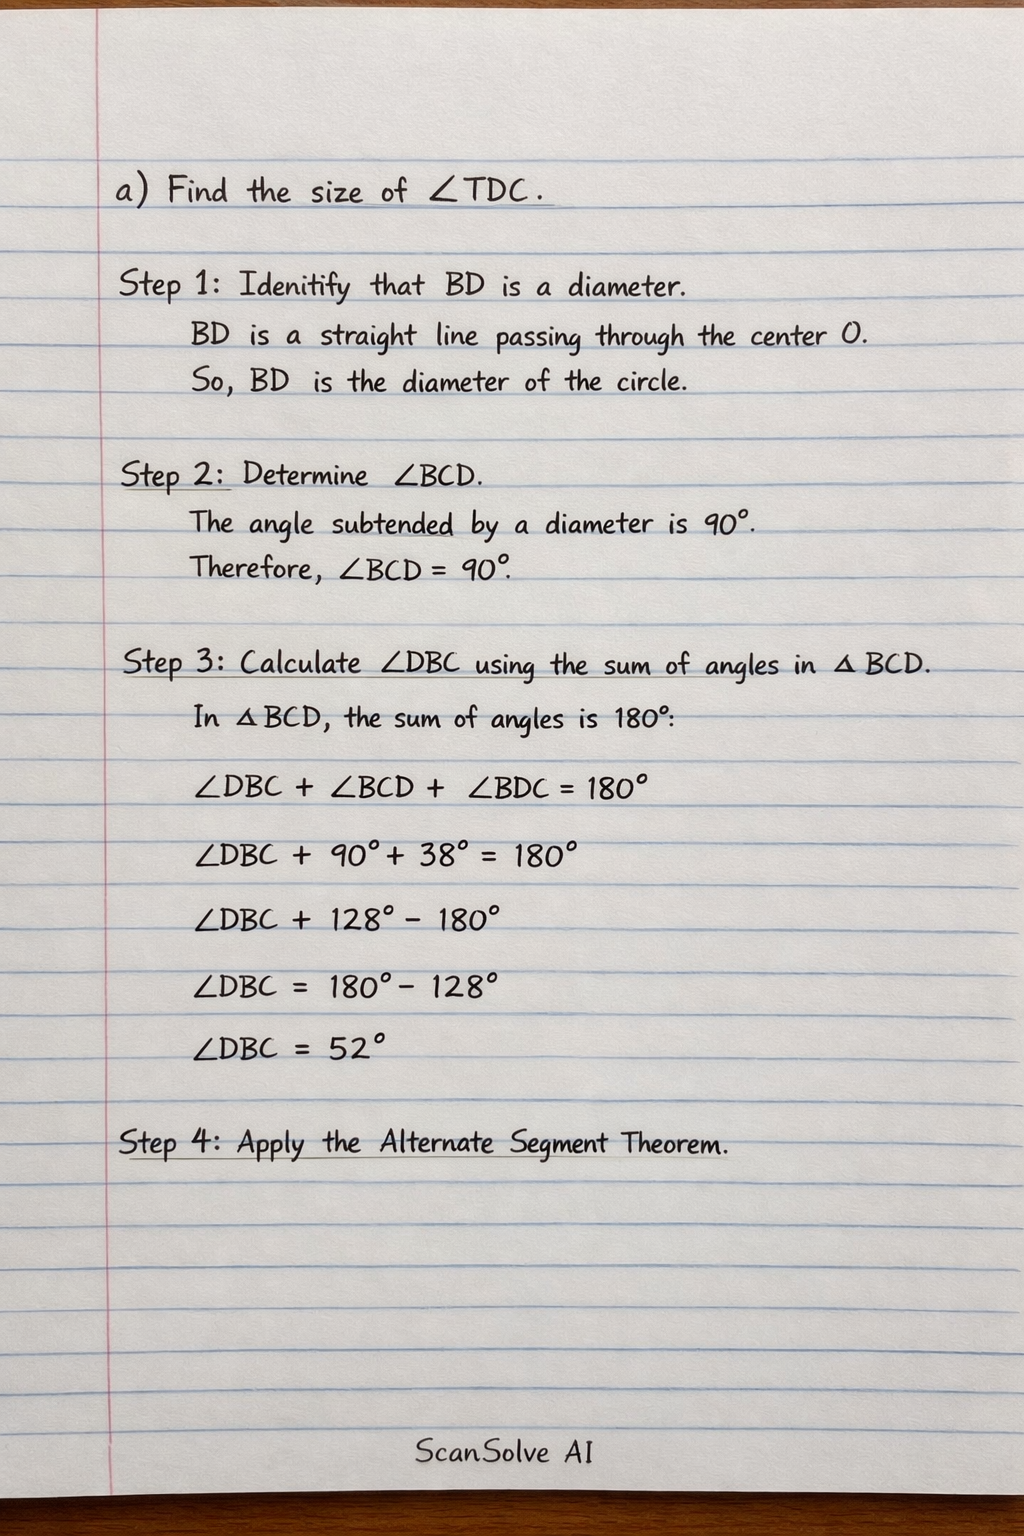 a) Find the size of ∠TDC.
Step 1: Idenitify that BD is a diameter.
BD is a straight line passing through the center O.
So, BD is the diameter of the circle.
Step 2: Determine ∠BCD.
The angle subtended by a diameter is 90°.
Therefore, ∠BCD = 90°.
Step 3: Calculate ∠DBC using the sum of angles in △BCD.
In △BCD, the sum of angles is 180°:
∠DBC + ∠BCD + ∠BDC = 180°
∠DBC + 90° + 38° = 180°
∠DBC + 128° – 180°
∠DBC = 180° – 128°
∠DBC = 52°
Step 4: Apply the Alternate Segment Theorem.
ScanSolve AI